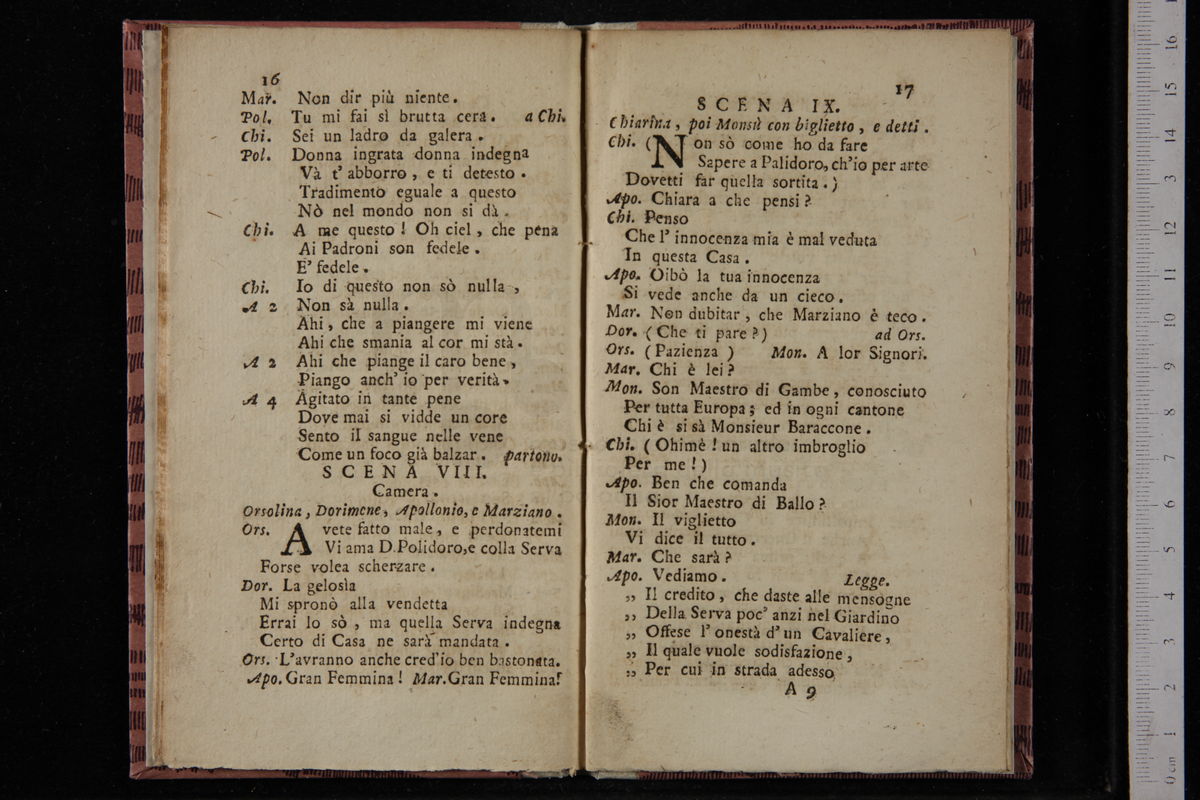 16
Mar. Non dir più niente.
Pol. Tu mi fai sì brutta cera. a Chi.
Chi. Sei un ladro da galera.
Pol. Donna ingrata donna indegna
Và t' abborro, e ti detesto.
Tradimento eguale a questo
Nò nel mondo non si dà.
Chi. A me questo! Oh ciel, che pena
Ai Padroni son fedele.
E' fedele.
Chi. Io di questo non sò nulla,
A 2 Non sà nulla.
Ahi, che a piangere mi viene
Ahi che smania al cor mi stà.
A 2 Ahi che piange il caro bene,
Piango anch' io per verità.
A 4 Agitato in tante pene
Dove mai si vidde un core
Sento il sangue nelle vene
Come un foco già balzar. partono.
SCENA VIII.
Camera.
Orsolina, Dorimene, Apollonio, e Marziano.
Ors. Avete fatto male, e perdonatemi
Vi ama D. Polidoro, e colla Serva
Forse volea scherzare.
Dor. La gelosìa
Mi spronò alla vendetta
Errai lo sò, ma quella Serva indegna
Certo di Casa ne sarà mandata.
Ors. L'avranno anche cred'io ben bastonata.
Apo. Gran Femmina! Mar. Gran Femmina!
17
SCENA IX.
Chiarina, poi Monsù con biglietto, e detti.
Chi. (Non sò come ho da fare
Sapere a Palidoro, ch'io per arte
Dovetti far quella sortita.)
Apo. Chiara a che pensi?
Chi. Penso
Che l' innocenza mia è mal veduta
In questa Casa.
Apo. Oibò la tua innocenza
Si vede anche da un cieco.
Mar. Non dubitar, che Marziano è teco.
Dor. (Che ti pare?) ad Ors.
Ors. (Pazienza) Mon. A lor Signori.
Mar. Chi è lei?
Mon. Son Maestro di Gambe, conosciuto
Per tutta Europa; ed in ogni cantone
Chi è si sà Monsieur Baraccone.
Chi. (Ohimè! un altro imbroglio
Per me!)
Apo. Ben che comanda
Il Sior Maestro di Ballo?
Mon. Il viglietto
Vi dice il tutto.
Mar. Che sarà?
Apo. Vediamo. Legge.
„ Il credito, che daste alle mensogne
„ Della Serva poc' anzi nel Giardino
„ Offese l' onestà d' un Cavaliere,
„ Il quale vuole sodisfazione,
„ Per cui in strada adesso
A 9
0 cm 1 2 3 4 5 6 7 8 9 10 11 12 13 14 15 16